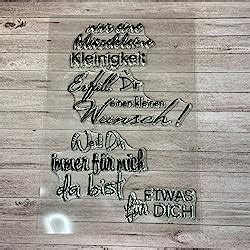 nur eine
klitzekleine
Kleinigkeit
Erfüll Dir
einen kleinen
Wunsch!
Weil Du
immer für mich
da bist
ETWAS
für DICH